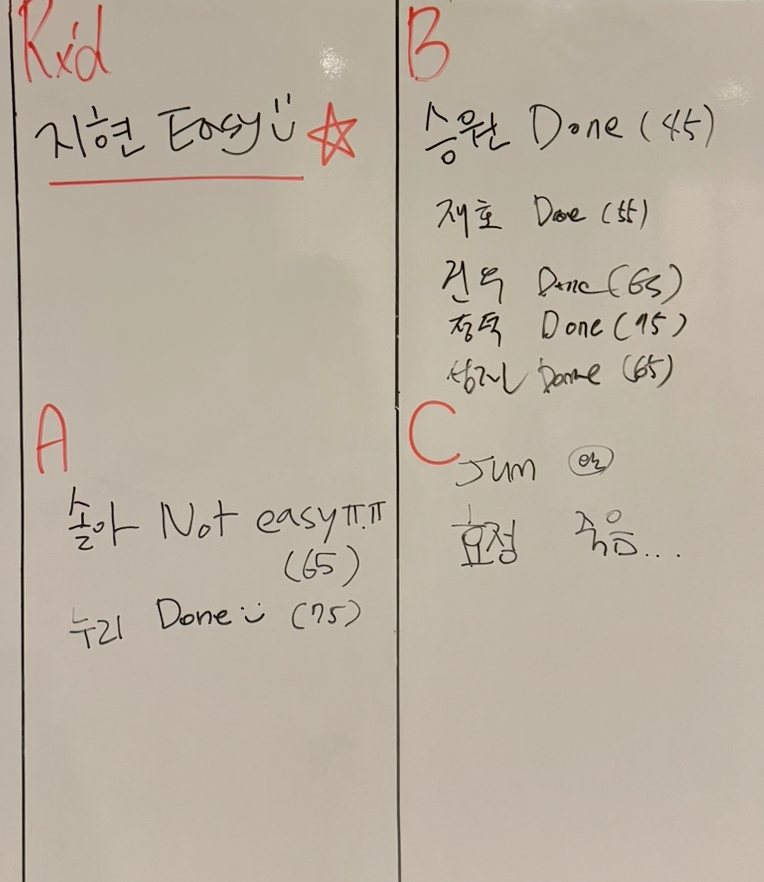 Rx'd
지현 Easy
A
솔아 Not easy ㅠ.ㅠ
(65)
누리 Done (75)
B
승원 Done (45)
재호 Done (55)
건욱 Done (65)
정묵 Done (75)
Done (65)
C
Jum 완
효정 죽음...